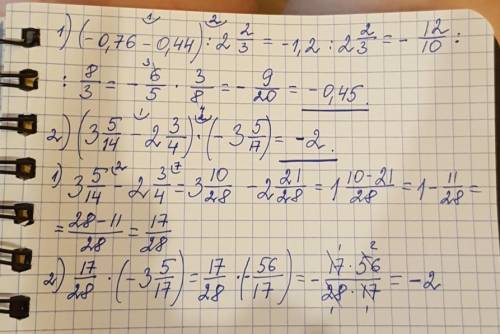 1) (-0,76 - 0,44) : 2 2/3 = -1,2 : 2 2/3 = - 12/10 :
: 8/3 = - 6/5 · 3/8 = - 9/20 = -0,45.
2) (3 5/14 - 2 3/4) · (-3 5/17) = -2.
1) 3 5/14 - 2 3/4 = 3 10/28 - 2 21/28 = 1 (10-21)/28 = 1 - 11/28 =
= (28-11)/28 = 17/28
2) 17/28 · (-3 5/17) = 17/28 · (-56/17) = - (17·56)/(28·17) = -2